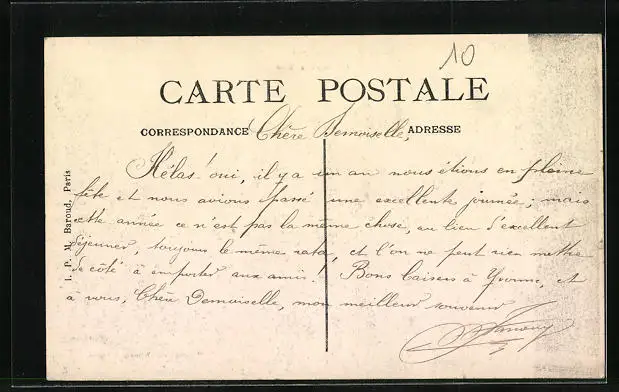 10
CARTE POSTALE
CORRESPONDANCE Chère Demoiselle, ADRESSE
Hélas! oui, il y a un an nous étions en pleine
fête et nous avions passé une excellente journée, mais
cette année ce n'est pas la même chose, au lieu d'excellent
déjeuner, toujours le même rata, et l'on ne peut rien mettre
de côté à emporter aux amis! Bons baisers à Yvonne, et
à vous, Chère Demoiselle, mon meilleur souvenir
I. P. M. Baroud, Paris